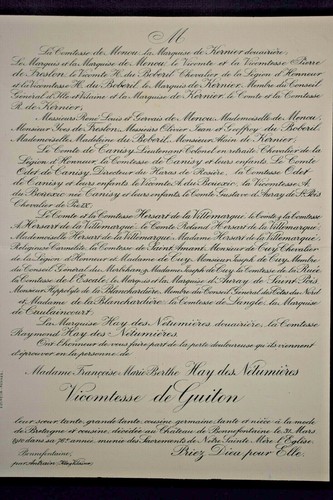 M
La Comtesse de Menou, la Marquise de Kernier douairière,
Le Marquis et la Marquise de Menou, le Vicomte et la Vicomtesse Pierre
de Freslon, le Vicomte H. du Boberil Chevalier de la Légion d'Honneur
et la Vicomtesse H. du Boberil, le Marquis de Kernier, Membre du Conseil
Général d'Ille et Vilaine et la Marquise de Kernier, le Comte et la Comtesse
R. de Kernier,
Messieurs René, Louis et Gervais de Menou, Mademoiselle de Menou,
Monsieur Yves de Freslon, Messieurs Olivier, Jean et Geoffroy du Boberil,
Mademoiselle Madeleine du Boberil, Monsieur Alain de Kernier,
Le Comte de Canisy, Lieutenant Colonel en retraite Chevalier de la
Légion d'Honneur, la Comtesse de Canisy et leurs enfants, Le Comte
Odet de Canisy, Directeur du Haras de Rosière, la Comtesse Odet
de Canisy et leurs enfants, le Vicomte A. du Bouëxic, la Vicomtesse A.
du Bouëxic née Canisy et leurs enfants, le Comte Gustave d'Auray de St. Pois
Chevalier de Pie IX,
Le Comte et la Comtesse Hersart de la Villemarqué, le Comte et la Comtesse
A. Hersart de la Villemarqué, le Comte Roland Hersart de la Villemarqué,
Mademoiselle Hersart de la Villemarqué, Madame Hersart de la Villemarqué,
Religieuse Carmélite, la Comtesse de Saint Amant, Monsieur de Cuzy Chevalier
de la Légion d'Honneur et Madame de Cuzy, Monsieur Joseph de Cuzy, Membre
du Conseil Général du Morbihan, Madame Joseph de Cuzy, la Comtesse de la Ruée
la Comtesse de l'Escale, le Marquis et la Marquise d'Auray de Saint Pois
Monsieur Hippolyte de la Blanchardière, Membre du Conseil Général des Côtes du Nord
et Madame de la Blanchardière, la Comtesse de Lengle, la Marquise
de Caulaincourt,
La Marquise Hay des Nétumières douairière, la Comtesse
Raymond Hay des Nétumières,
Ont l'honneur de vous faire part de la perte douloureuse qu'ils viennent
d'éprouver en la personne de
Madame Françoise-Marie-Berthe Hay des Nétumières
Vicomtesse de Guiton
leur sœur, tante, grande-tante, cousine germaine, tante et nièce à la mode
de Bretagne et cousine, décédée au Château de Bonnefontaine le 31 Mars
dans sa année, munie des Sacrements de Notre Sainte Mère l'Eglise.
Bonnefontaine, Priez Dieu pour Elle.
par Antrain